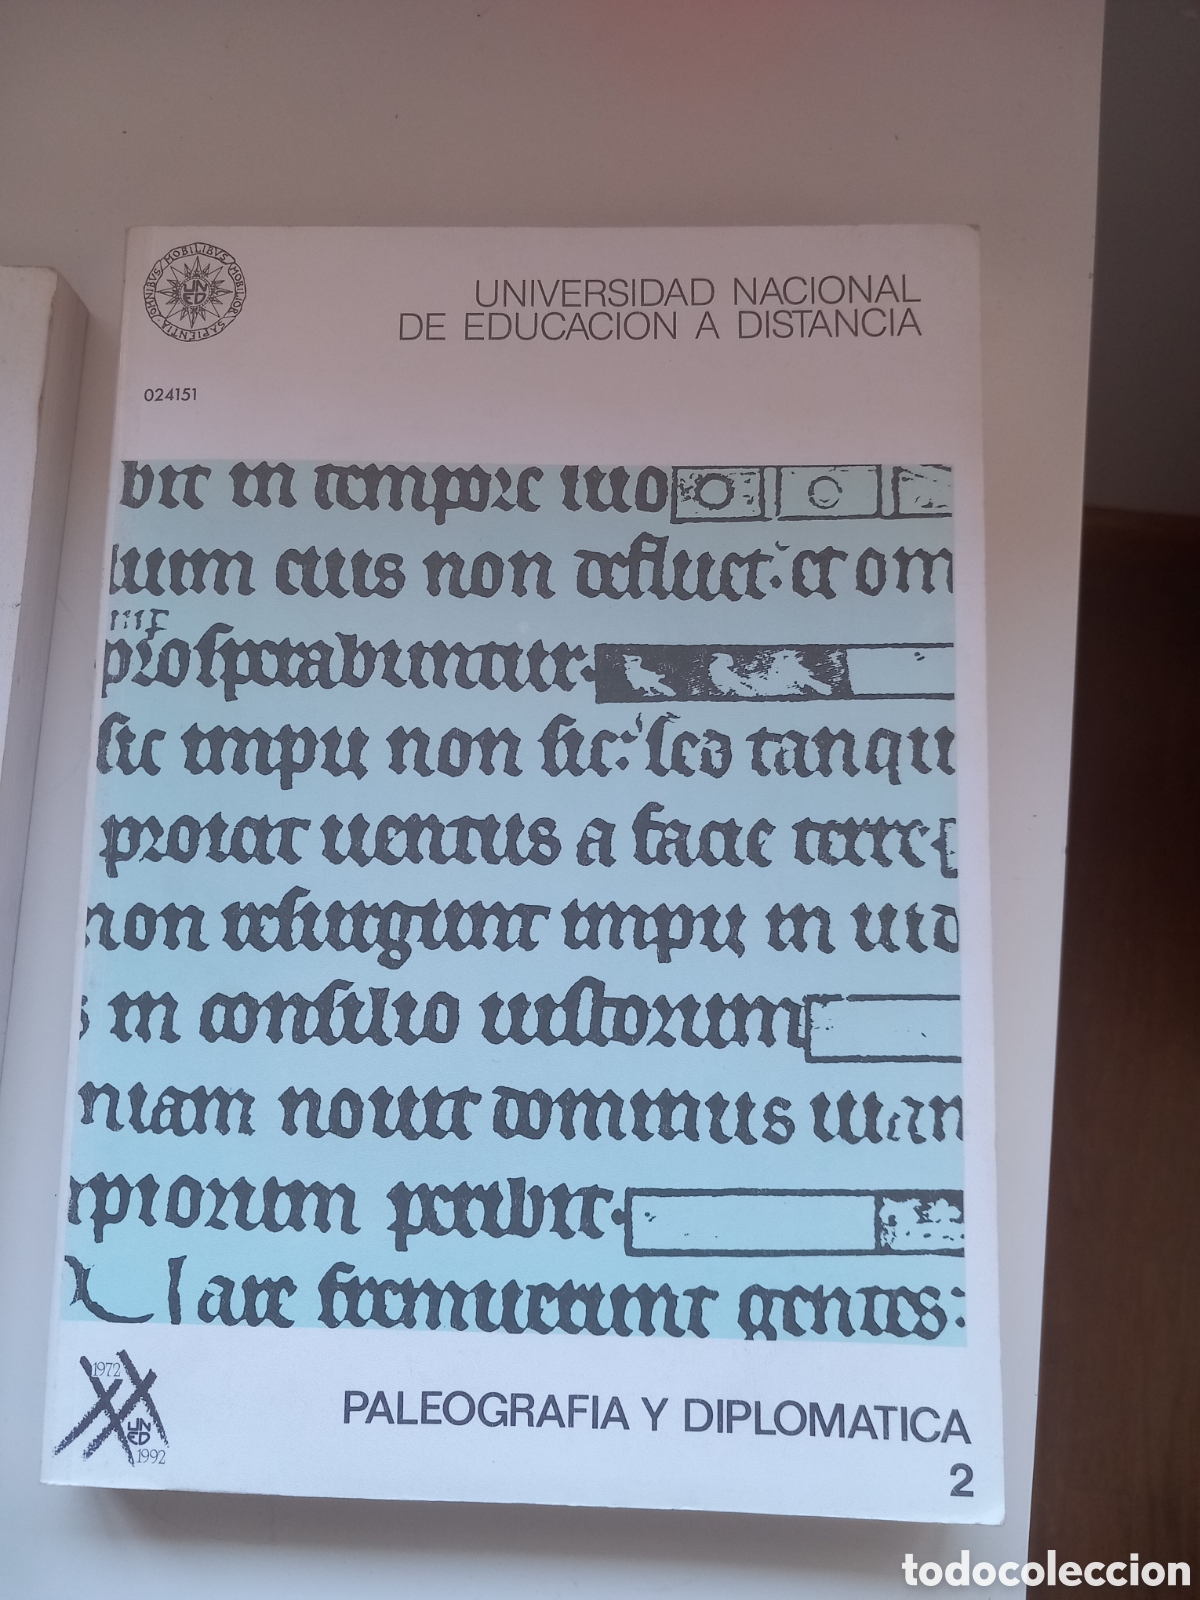 OMNIBVS MOBILIBVS MOBILIOR SAPIENTIA
UNED
UNIVERSIDAD NACIONAL
DE EDUCACION A DISTANCIA
024151
bit in tempore suo
lium eius non defluet: et om
prosperabuntur.
sic impii non sic: sed tanqu
proicit uentus a facie terre
non resurgunt impii in iud
s in consilio iustorum
niam nouit dominus uian
mpiorum peribit.
are fremuerunt gentes:
1972
UNED
1992
PALEOGRAFIA Y DIPLOMATICA
2
todocoleccion